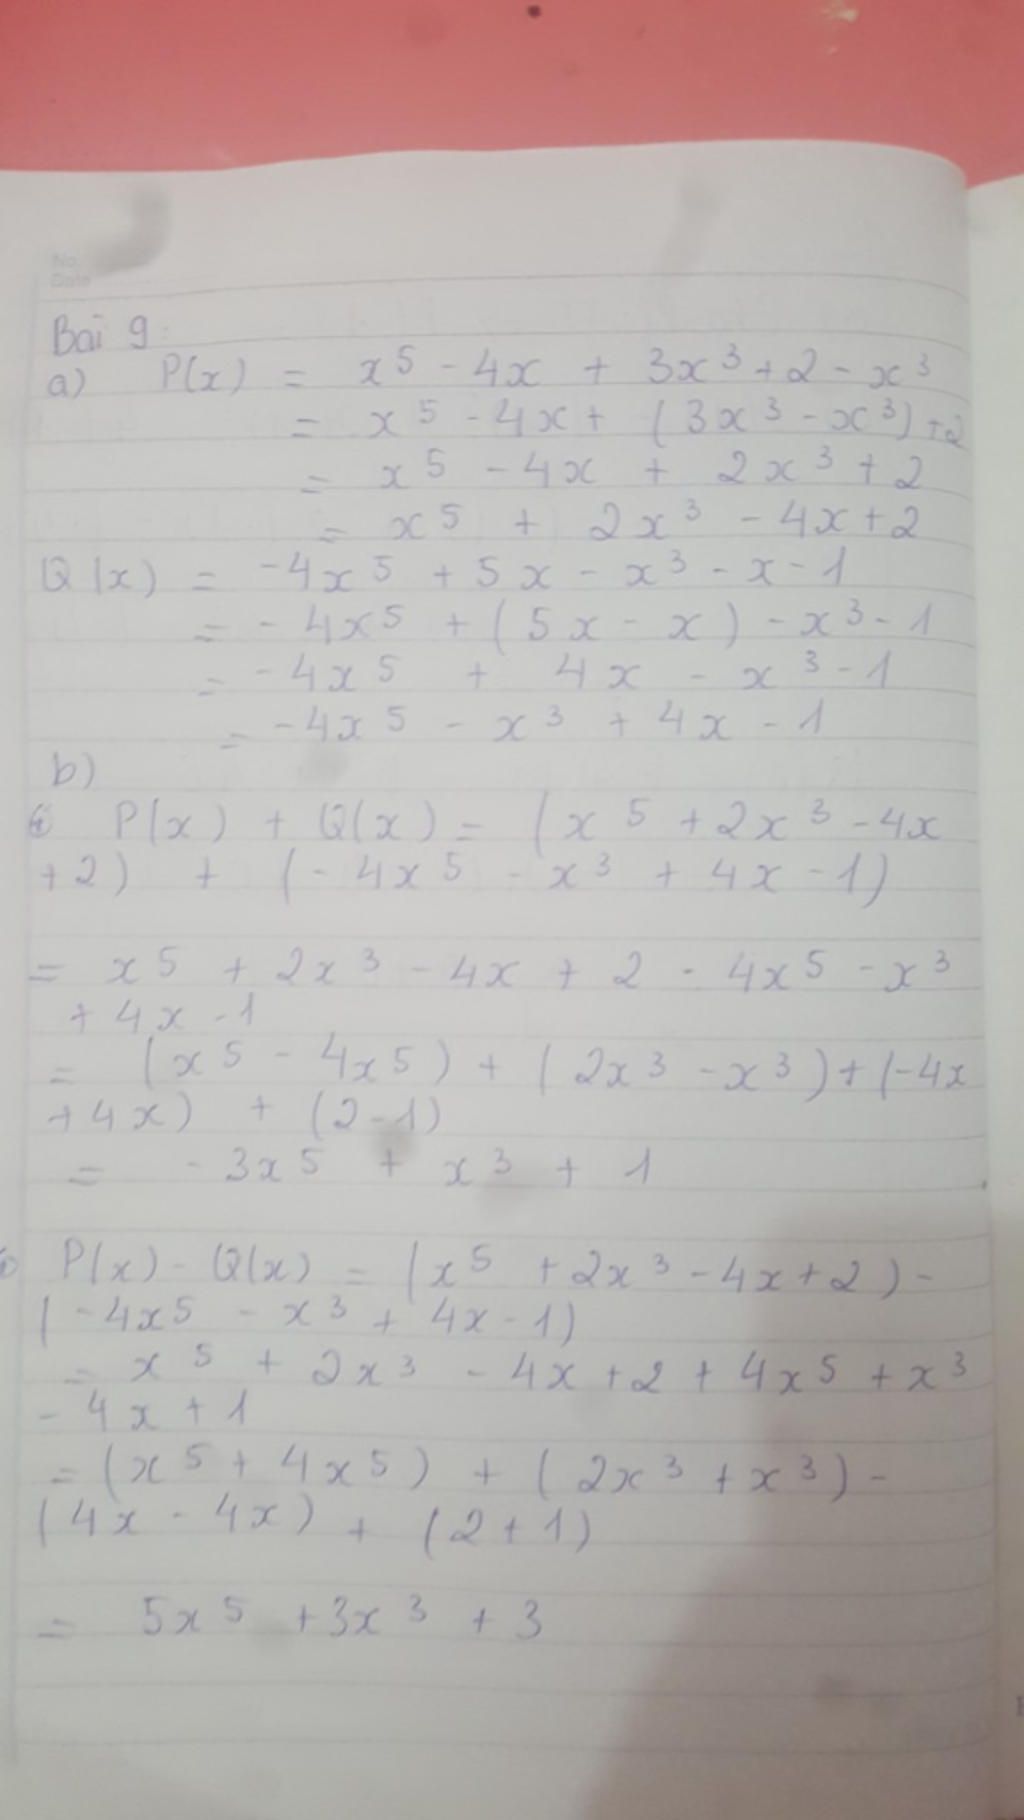 No.
Date
Bai 9
a) P(x) = x⁵ - 4x + 3x³ + 2 - x³
= x⁵ - 4x + (3x³ - x³) + 2
= x⁵ - 4x + 2x³ + 2
= x⁵ + 2x³ - 4x + 2
Q(x) = -4x⁵ + 5x - x³ - x - 1
= - 4x⁵ + (5x - x) - x³ - 1
= - 4x⁵ + 4x - x³ - 1
= -4x⁵ - x³ + 4x - 1
b)
P(x) + Q(x) = (x⁵ + 2x³ - 4x
+ 2) + (- 4x⁵ - x³ + 4x - 1)
= x⁵ + 2x³ - 4x + 2 - 4x⁵ - x³
+ 4x - 1
= (x⁵ - 4x⁵) + (2x³ - x³) + (-4x
+ 4x) + (2 - 1)
= - 3x⁵ + x³ + 1
P(x) - Q(x) = (x⁵ + 2x³ - 4x + 2) -
(- 4x⁵ - x³ + 4x - 1)
= x⁵ + 2x³ - 4x + 2 + 4x⁵ + x³
- 4x + 1
= (x⁵ + 4x⁵) + (2x³ + x³) -
(4x - 4x) + (2 + 1)
= 5x⁵ + 3x³ + 3